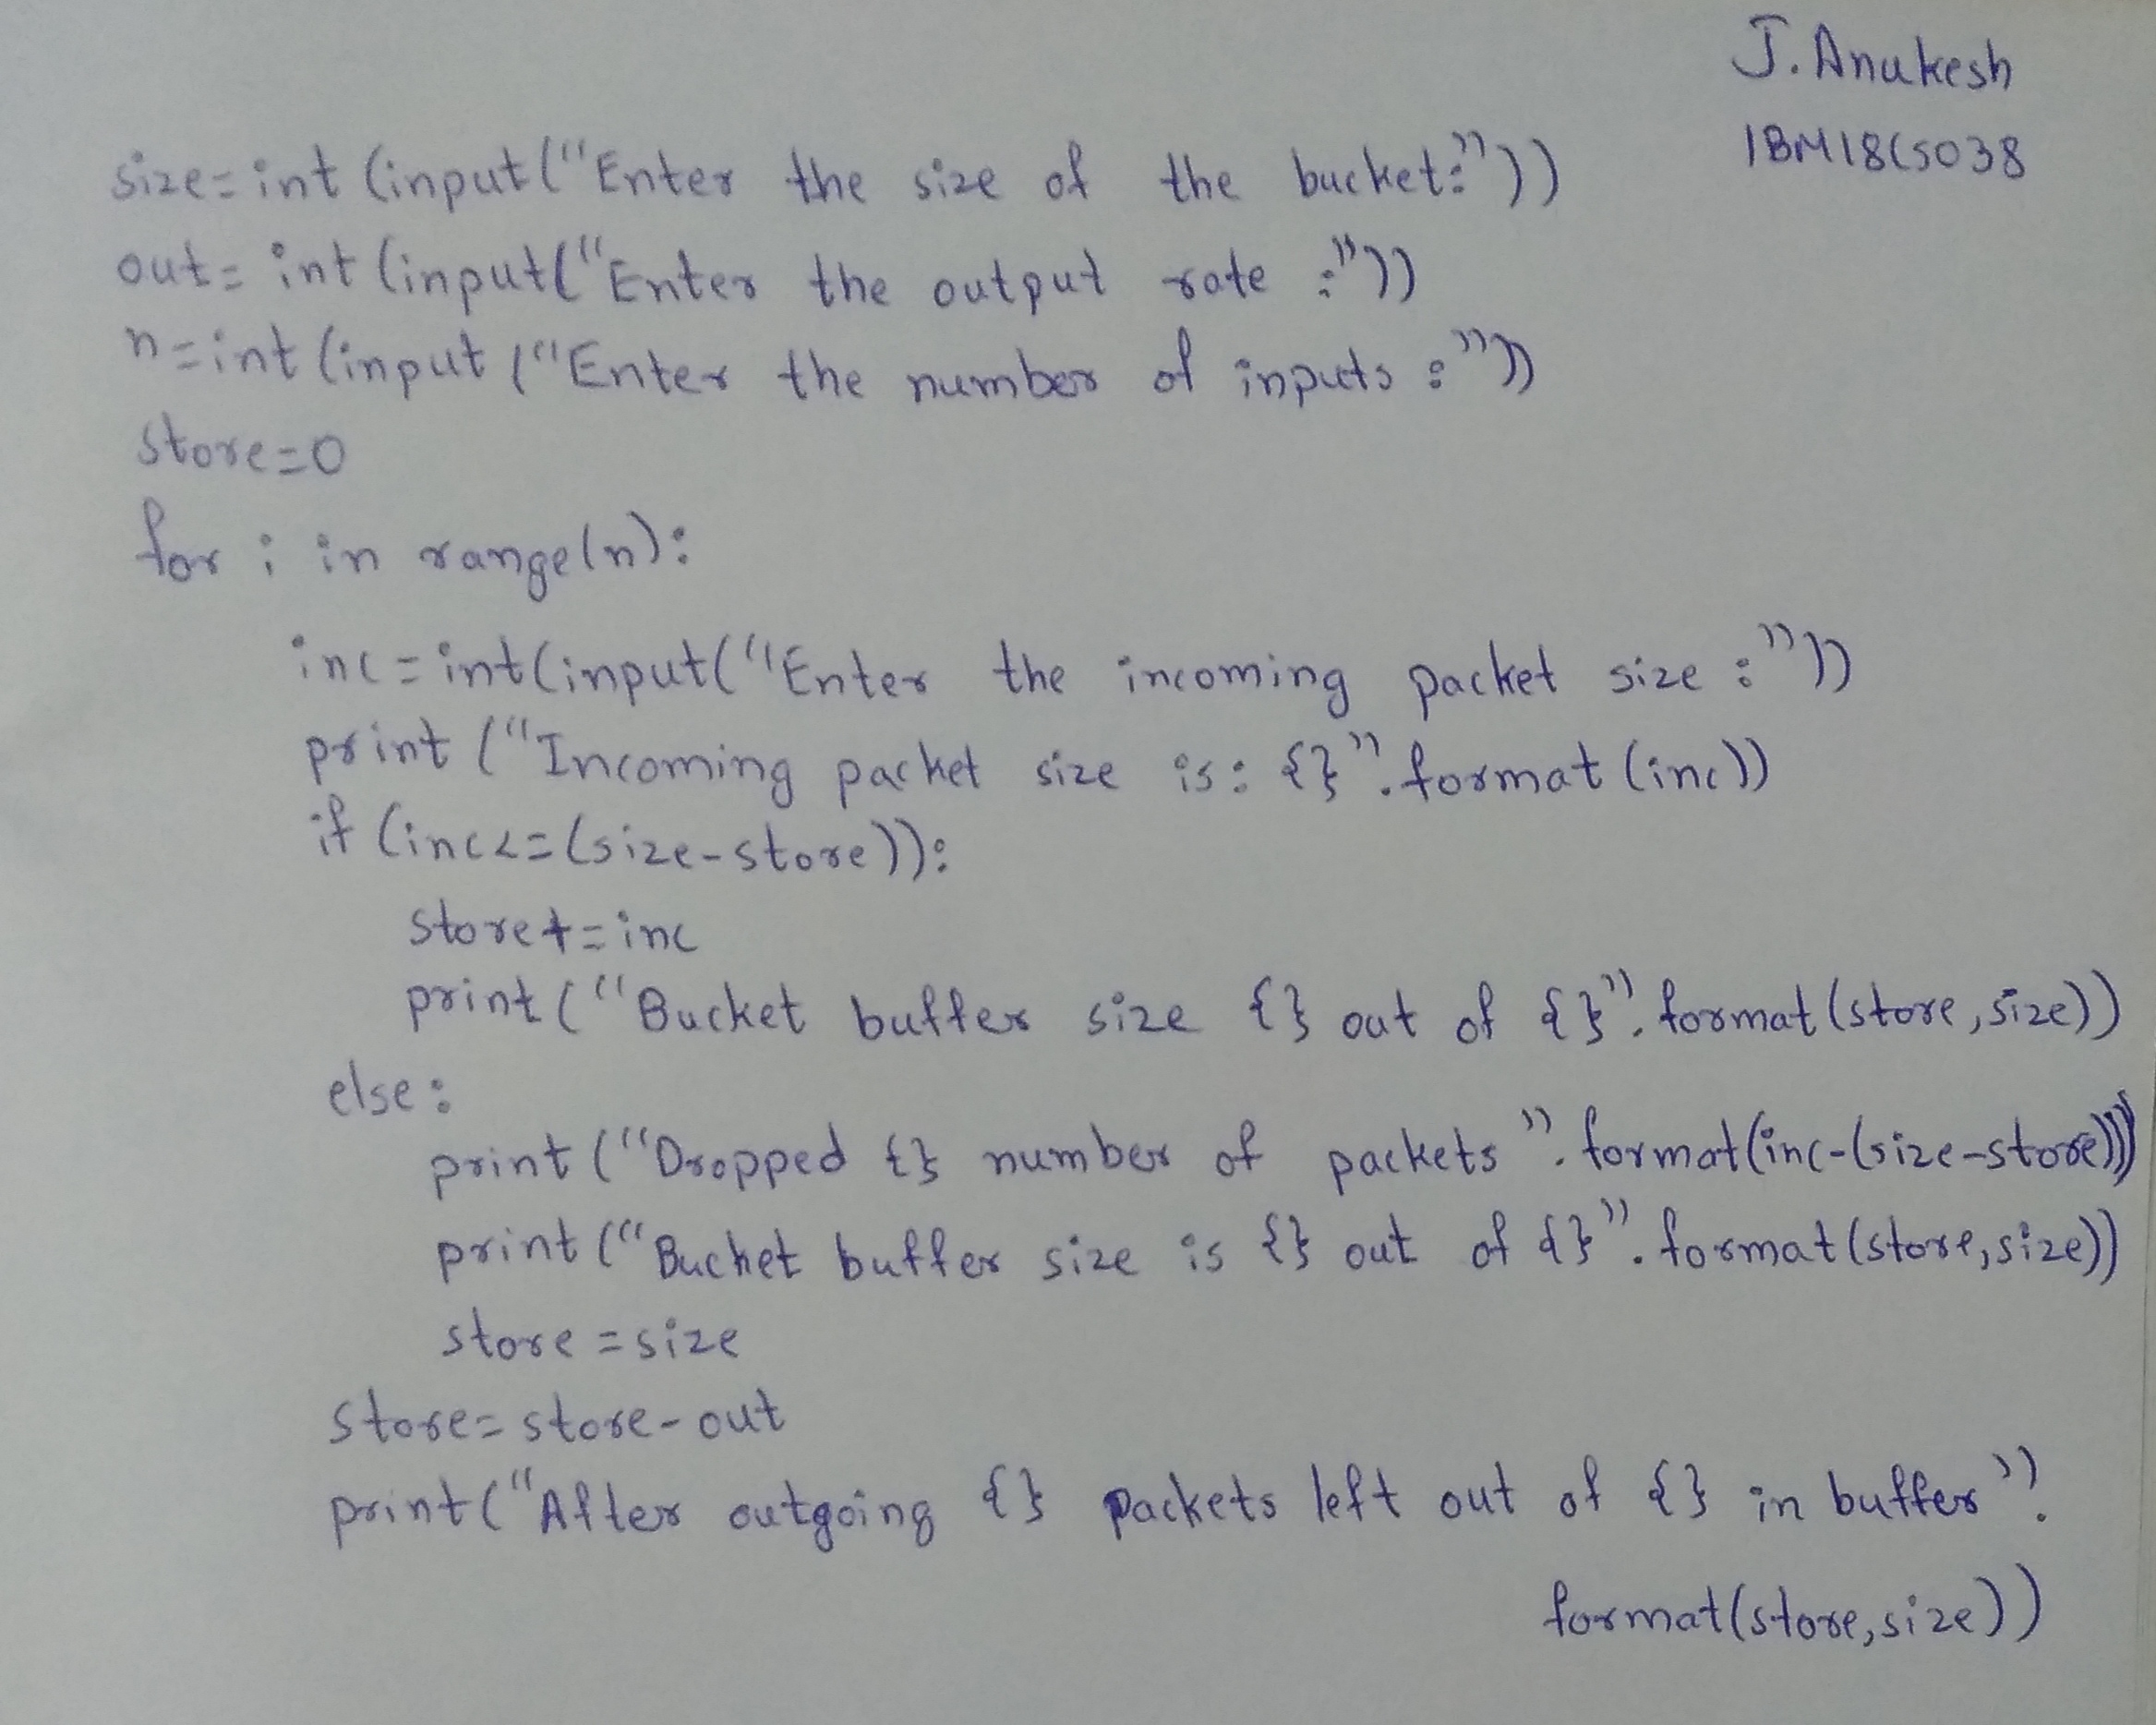 J. Anukesh
1BM18CS038
size=int(input("Enter the size of the bucket:"))
out=int(input("Enter the output rate :"))
n=int(input("Enter the number of inputs :"))
store=0
for i in range(n):
inc=int(input("Enter the incoming packet size :"))
print("Incoming packet size is: {}".format(inc))
if (inc<=(size-store)):
store+=inc
print("Bucket buffer size {} out of {}".format(store,size))
else:
print("Dropped {} number of packets".format(inc-(size-store)))
print("Bucket buffer size is {} out of {}".format(store,size))
store=size
store=store-out
print("After outgoing {} packets left out of {} in buffer".
format(store,size))